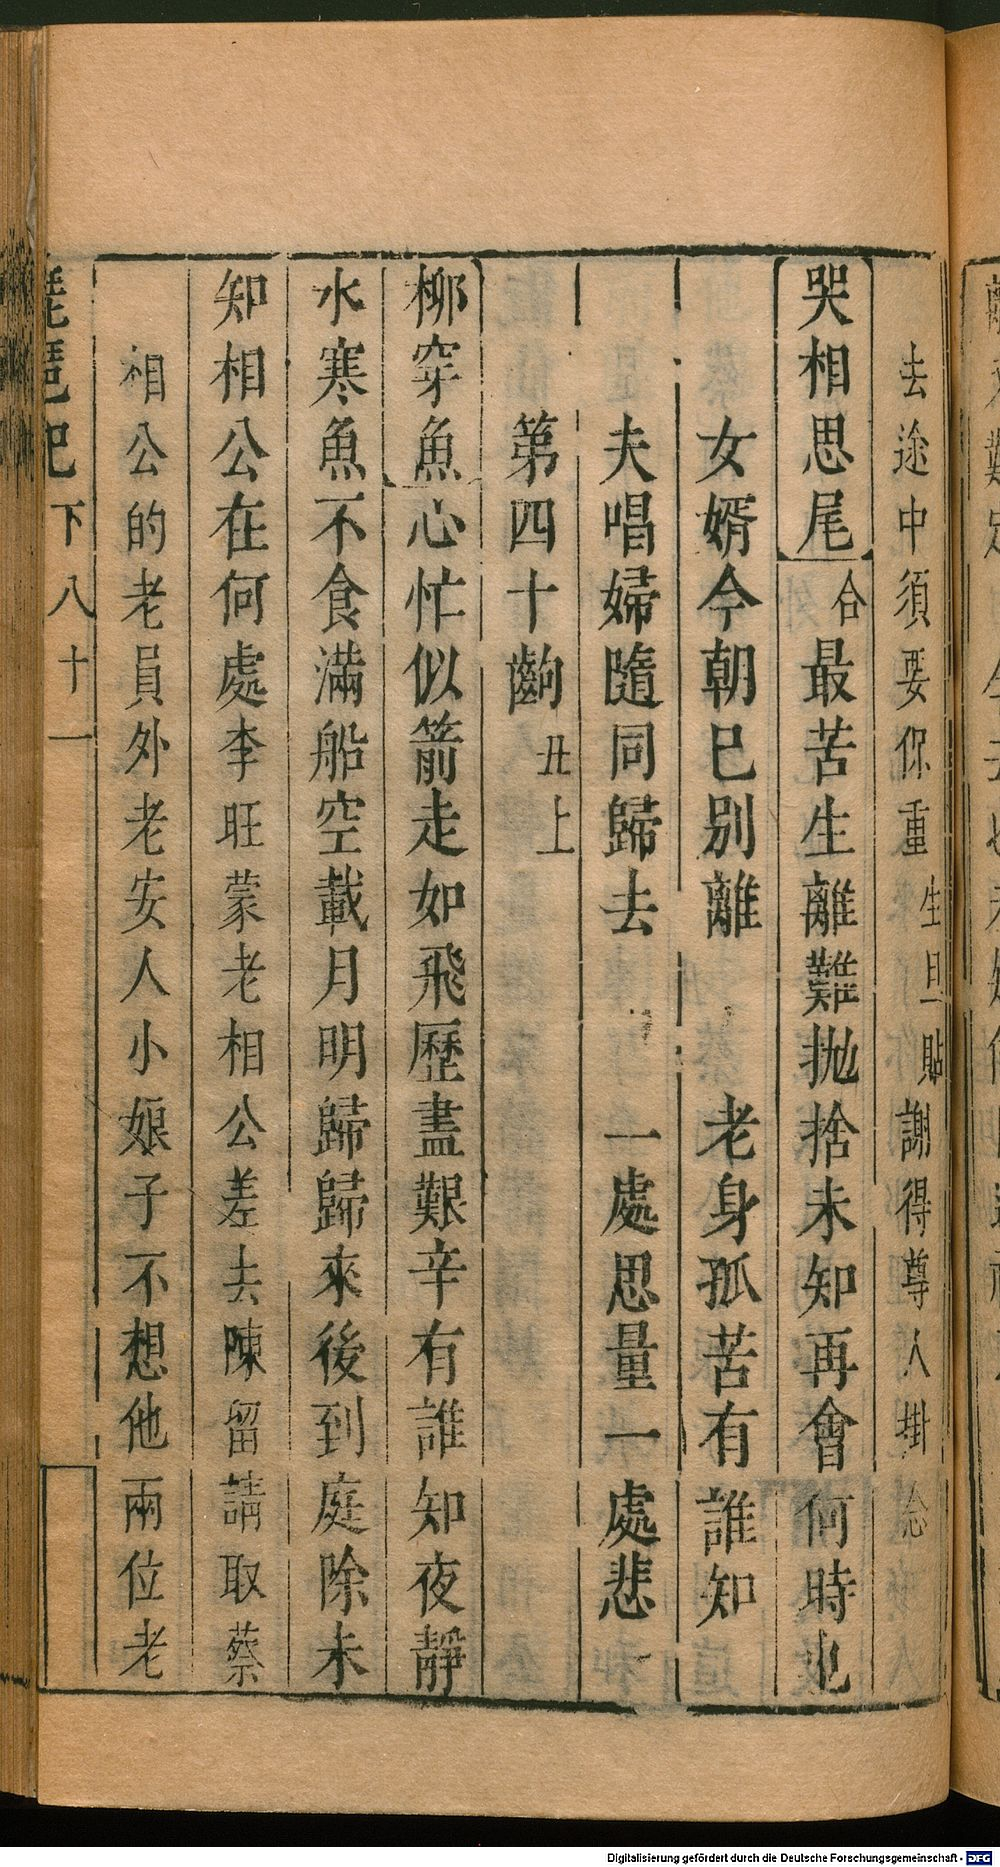 去途中須要保重生旦貼謝得尊人掛念
哭相思尾合最苦生離難抛捨未知再會何時也
女婿今朝已别離　老身孤苦有誰知
夫唱婦隨同歸去　一處思量一處悲
第四十齣丑上
柳穿魚心忙似箭走如飛歷盡艱辛有誰知夜靜
水寒魚不食滿船空載月明歸歸來後到庭除未
知相公在何處李旺蒙老相公差去陳留請取蔡
相公的老員外老安人小娘子不想他兩位老
琵琶記下八十一
Digitalisierung gefördert durch die Deutsche Forschungsgemeinschaft - DFG